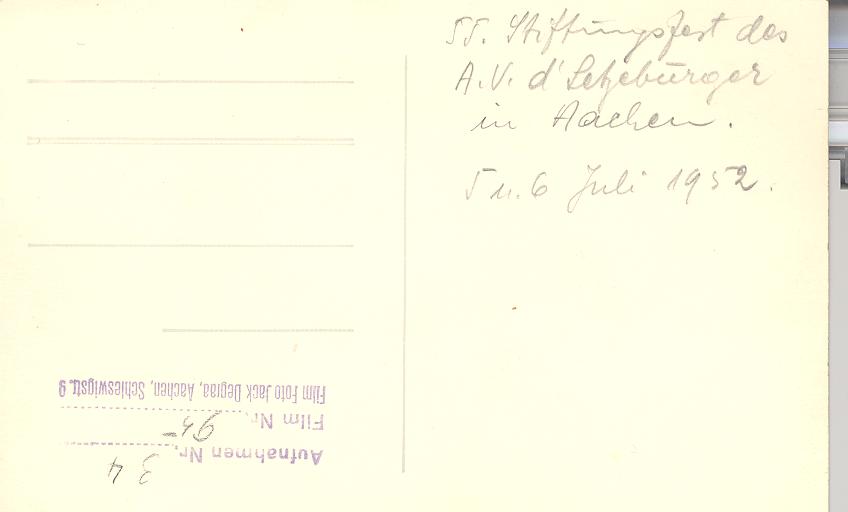 55. Stiftungsfest des
A.V. d'Letzeburger
in Aachen.
5 u. 6 Juli 1952.
Aufnahmen Nr. 34
Film Nr. 95
Film Foto Jack Degraa, Aachen, Schleswigstr. 9